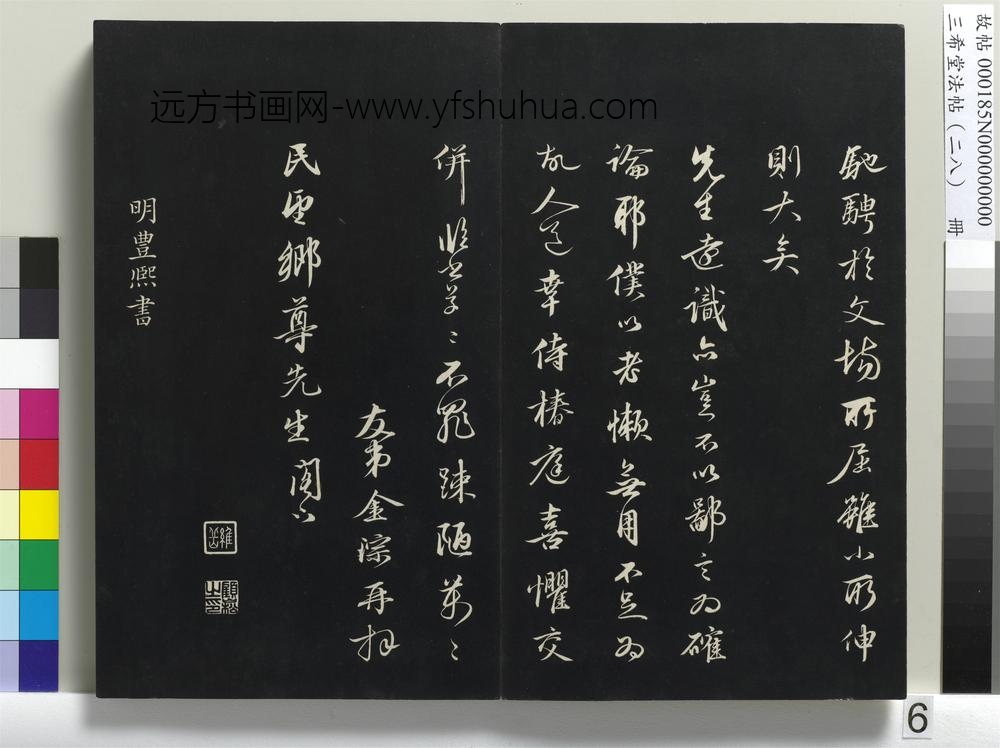 馳騁於文場所屈雖小所伸
則大矣
先生遠識亦豈不以鄙言為確
論耶僕以老懶無用不足為
故人道幸侍椿庭喜懼交
併臨書草〻不罪踈陋萬〻
友弟金淙再拜
民望鄉尊先生閣下
明豐熙書
远方书画网-www.yfshuhua.com
故帖 000185N000000000
三希堂法帖(二八) 冊
6